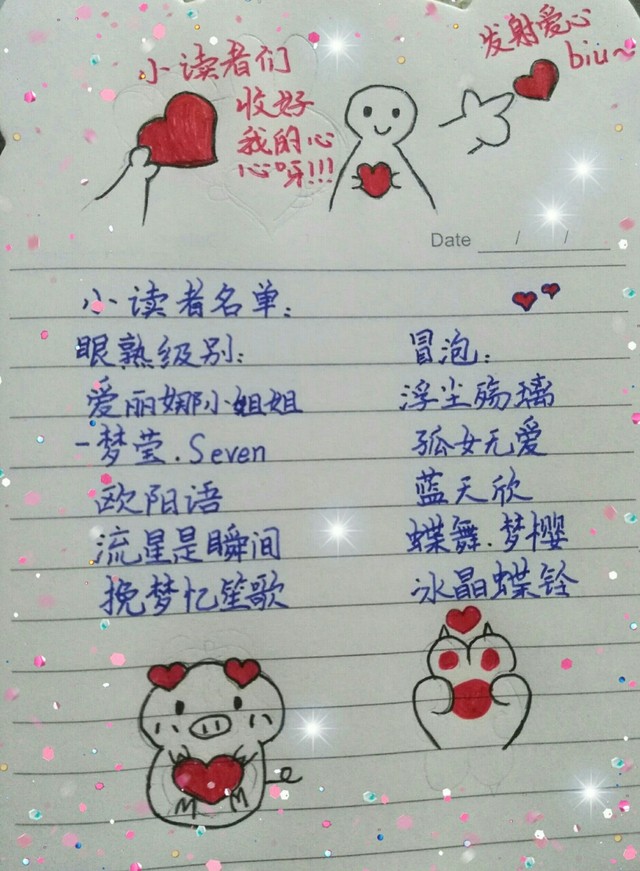 小读者们
收好
我的心
心呀!!!
发射爱心
biu~
Date / /
小读者名单:
眼熟级别:
爱丽娜小姐姐
一梦莹.Seven
欧阳语
流星是瞬间
挽梦忆笙歌
冒泡:
浮尘殇璃
孤女无爱
蓝天欣
蝶舞.梦樱
冰晶蝶铨